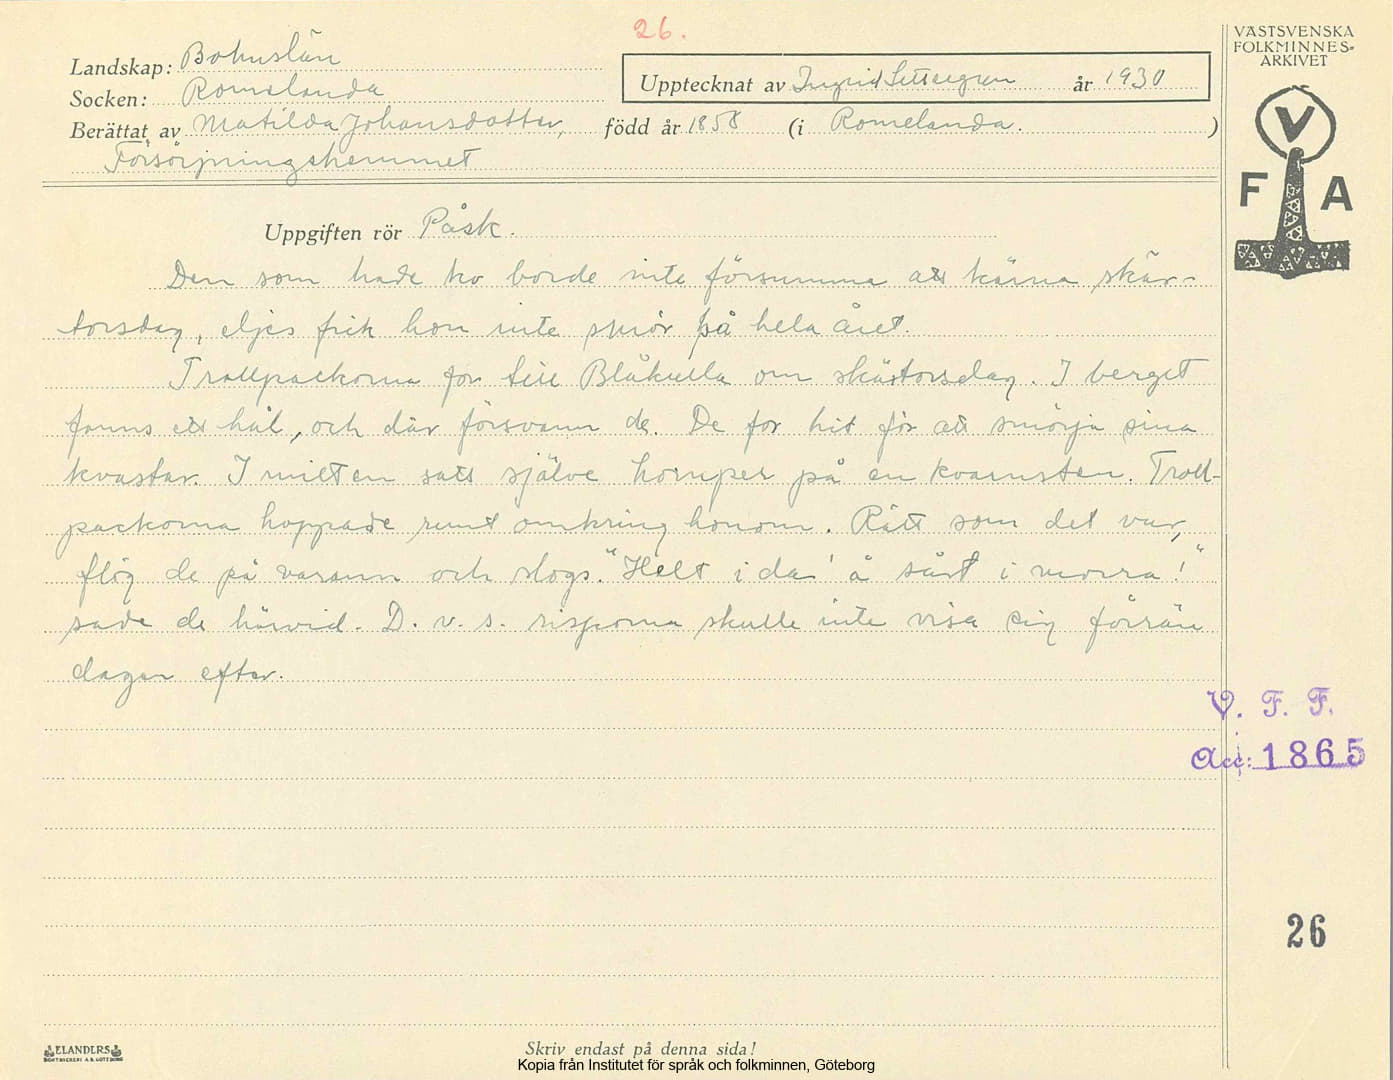 26.
VÄSTSVENSKA
FOLKMINNES-
ARKIVET
Landskap: Bohuslän
Socken: Romelanda
Upptecknat av Ingrid år 1930
Berättat av Matilda Johansdotter, född år 1858 (i Romelanda.)
Försörjningshemmet
V
F A
Uppgiften rör Påsk.
Den som hade ko borde inte försumma att kärna skär-
torsdag, eljes fick hon inte smör på hela året.
Trollpackorna for till Blåkulla om skärtorsdag. I berget
fanns ett hål, och där försvann de. De for hit för att smörja sina
kvastar. I mitten satt själve hornper på en kvarnsten. Troll-
packorna hoppade runt omkring honom. Rätt som det var,
flög de på varann och slogs. "Helt i da' å sårt i morra!"
sade de härvid. D. v. s. risporna skulle inte visa sig förrän
dagen efter.
V. F. F.
Acc: 1865
26
ELANDERS
BOKTRYCKERI A.B. GÖTEBORG
Skriv endast på denna sida!
Kopia från Institutet för språk och folkminnen, Göteborg